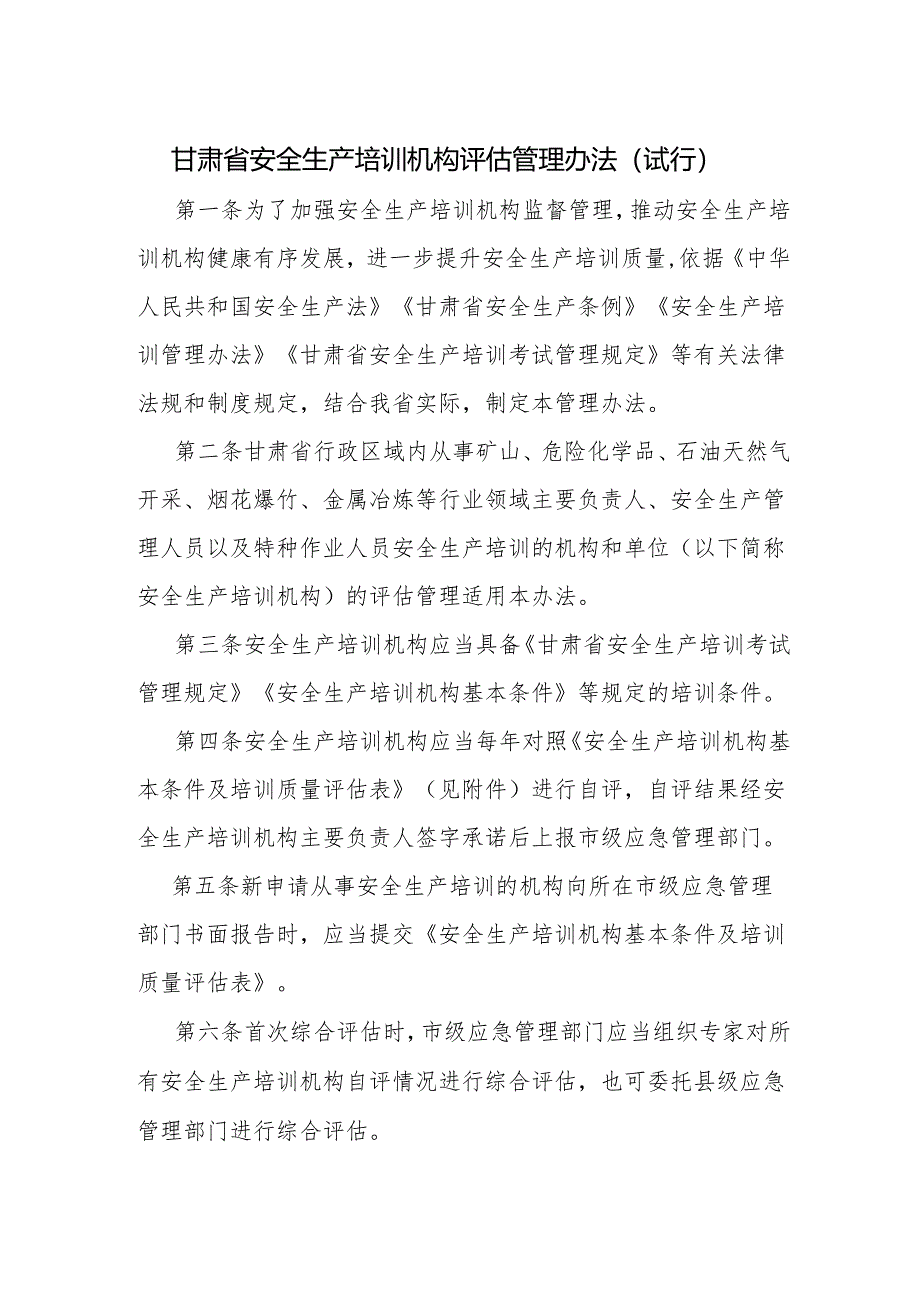 甘肃省安全生产培训机构评估管理办法（试行）
第一条为了加强安全生产培训机构监督管理，推动安全生产培
训机构健康有序发展，进一步提升安全生产培训质量,依据《中华
人民共和国安全生产法》《甘肃省安全生产条例》《安全生产培
训管理办法》《甘肃省安全生产培训考试管理规定》等有关法律
法规和制度规定，结合我省实际，制定本管理办法。
第二条甘肃省行政区域内从事矿山、危险化学品、石油天然气
开采、烟花爆竹、金属冶炼等行业领域主要负责人、安全生产管
理人员以及特种作业人员安全生产培训的机构和单位（以下简称
安全生产培训机构）的评估管理适用本办法。
第三条安全生产培训机构应当具备《甘肃省安全生产培训考试
管理规定》《安全生产培训机构基本条件》等规定的培训条件。
第四条安全生产培训机构应当每年对照《安全生产培训机构基
本条件及培训质量评估表》（见附件）进行自评，自评结果经安
全生产培训机构主要负责人签字承诺后上报市级应急管理部门。
第五条新申请从事安全生产培训的机构向所在市级应急管理
部门书面报告时，应当提交《安全生产培训机构基本条件及培训
质量评估表》。
第六条首次综合评估时，市级应急管理部门应当组织专家对所
有安全生产培训机构自评情况进行综合评估，也可委托县级应急
管理部门进行综合评估。